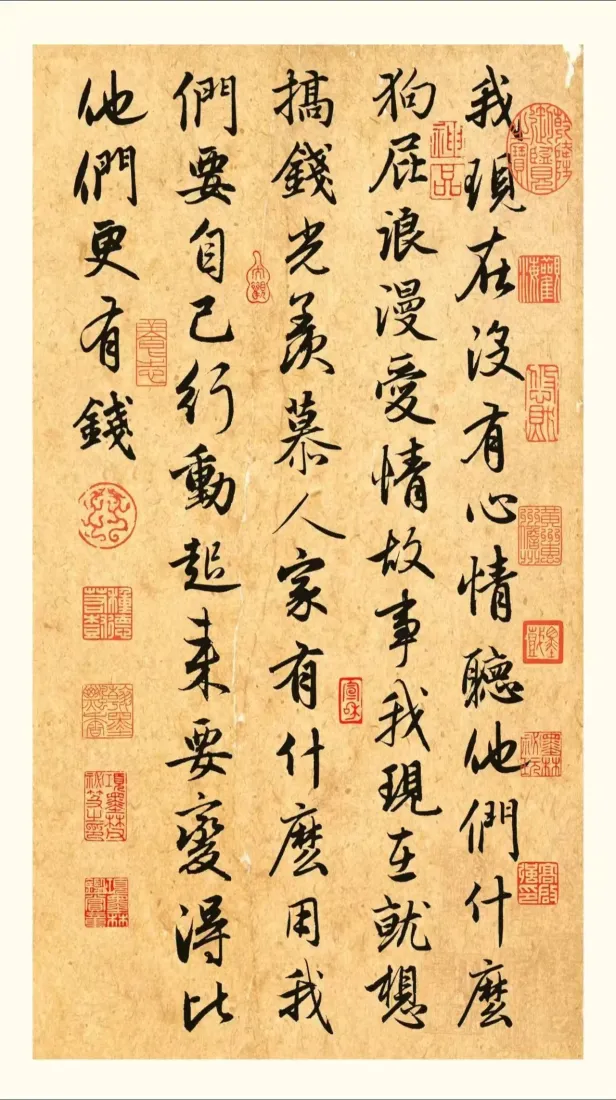 我現在没有心情聽他們什麼
狗屁浪漫愛情故事我現在就想
搞錢光羨慕人家有什麼用我
們要自己行動起来要變得比
他們更有錢
神品